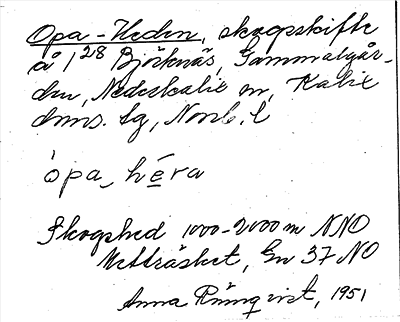 Opa-Heden, skogsskifte
å 1²⁸ Björknäs, Gammalgår-
den, Nederkalix sn, Kalix
dmns. tg, Norrb. l
òpa hera
Skogshed 1000-2000 m NNO
Mettträsket, Gn 37 NO
Anna Rönqvist, 1951